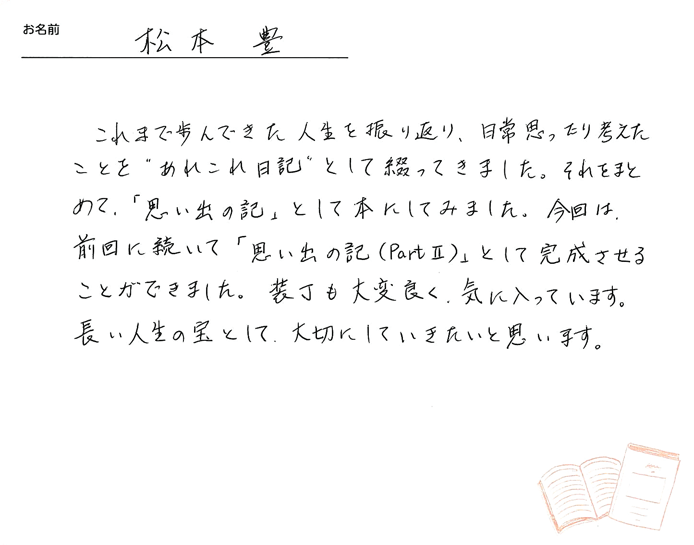 お名前 松本 豊
これまで歩んできた人生を振り返り、日常思ったり考えた
ことを“あれこれ日記”として綴ってきました。それをまと
めて、「思い出の記」として本にしてみました。今回は、
前回に続いて「思い出の記(PartⅡ)」として完成させる
ことができました。装丁も大変良く、気に入っています。
長い人生の宝として、大切にしていきたいと思います。